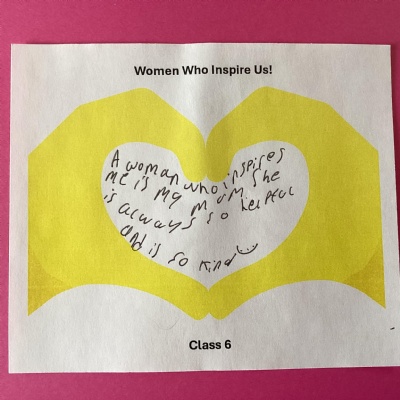 Women Who Inspire Us!
A woman who inspires
me is my mum. She
is always so helpful
and is so kind
Class 6